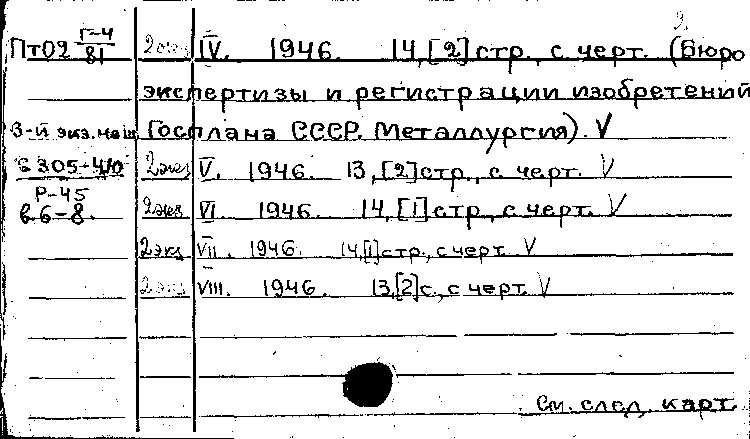 2.
Пт02 Г-4/81 2 экз IV. 1946. 14,[2] стр. с черт. (Бюро
экспертизы и регистрации изобретений
3-й экз. маш. Госплана СССР. Металлургия). V
2 экз V. 1946. 13,[2] стр., с черт. V
Р-45
в.6-8. 2 экз VI 1946. 14,[1] стр., с черт. V
2 экз VII. 1946. 14,[1] стр., с черт. V
2 экз VIII. 1946. 13,[2] с., с черт. V
См. след. карт.